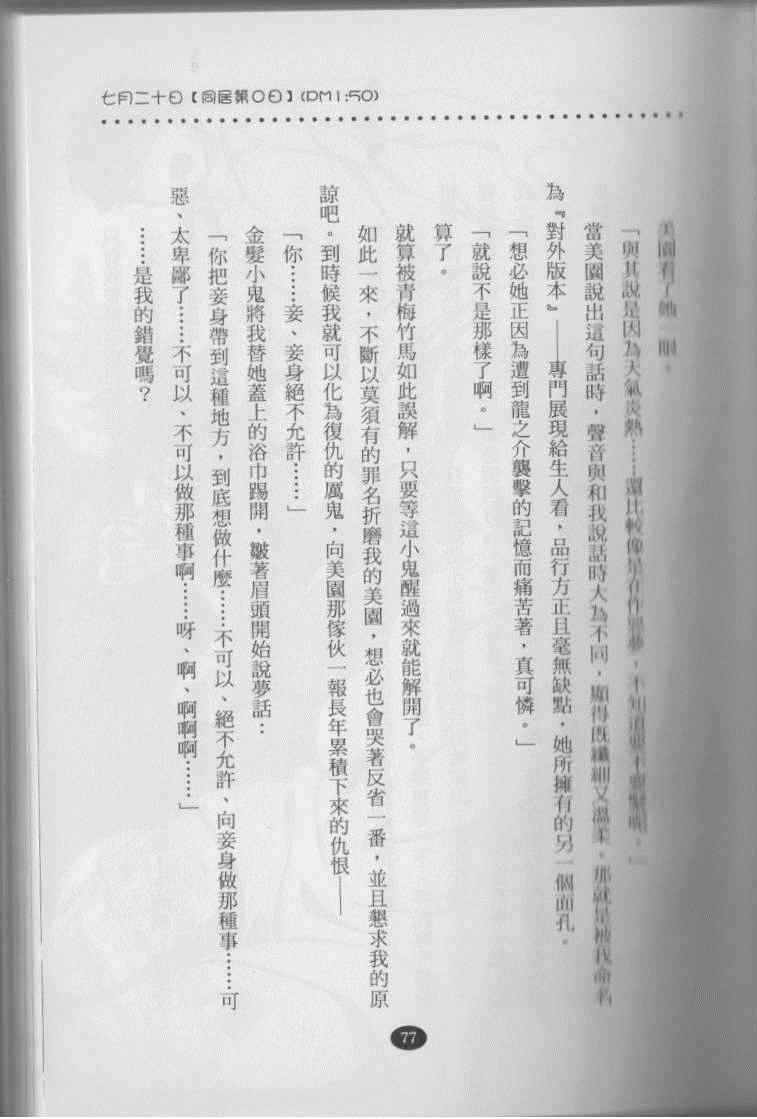 七月二十日【同居第〇日】(PM1:50)
美園看了她一眼。
「與其說是因為天氣炎熱……還比較像是在作惡夢，不知道要不要緊呢。」
當美園說出這句話時，聲音與和我說話時大為不同，顯得既纖細又溫柔。那就是被我命名
為『對外版本』——專門展現給生人看，品行方正且毫無缺點，她所擁有的另一個面孔。
「想必她正因為遭到龍之介襲擊的記憶而痛苦著，真可憐。」
「就說不是那樣了啊。」
算了。
就算被青梅竹馬如此誤解，只要等這小鬼醒過來就能解開了。
如此一來，不斷以莫須有的罪名折磨我的美園，想必也會哭著反省一番，並且懇求我的原
諒吧。到時候我就可以化為復仇的厲鬼，向美園那傢伙一報長年累積下來的仇恨——
「你……妾、妾身絕不允許……」
金髮小鬼將我替她蓋上的浴巾踢開，皺著眉頭開始說夢話：
「你把妾身帶到這種地方，到底想做什麼……不可以、絕不允許、向妾身做那種事……可
惡、太卑鄙了……不可以、不可以做那種事啊……呀、啊、啊啊啊……」
……是我的錯覺嗎？
77